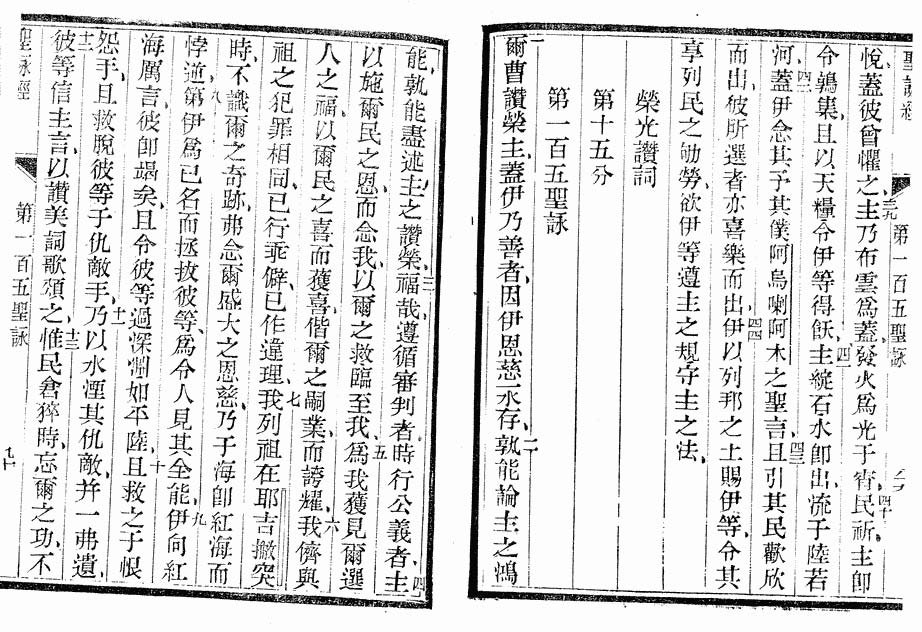 聖詠經
第一百五聖詠
悅蓋彼曾懼之三九主乃布雲爲蓋發火爲光于宵民祈四十主卽
令鶉集且以天糧令伊等得飫四一主綻石水卽出流于陸若
河四二蓋伊念其予其僕阿烏喇阿木之聖言四三且引其民歡欣
而出彼所選者亦喜樂而出四四伊以列邦之土賜伊等令其
享列民之劬勞欲伊等遵主之規守主之法
榮光讚詞
第十五分
第一百五聖詠
一爾曹讚榮主蓋伊乃善者因伊恩慈永存二孰能論主之鴻
能孰能盡述主之讚榮三福哉遵循審判者時行公義者四主
以施爾民之恩而念我以爾之救臨至我五爲我獲見爾選
人之福以爾民之喜而獲喜偕爾之嗣業而誇耀六我儕與
祖之犯罪相同已行乖僻已作違理七我列祖在耶吉撇突
時不識爾之奇跡弗念爾盛大之恩慈乃于海卽紅海而
悖逆八第伊爲己名而拯救彼等爲令人見其全能九伊向紅
海厲言彼卽竭矣且令彼等過深淵如平陸十且救之于恨
怨手且救脫彼等于仇敵手十一乃以水湮其仇敵幷一弗遺
十二彼等信主言以讚美詞歌頌之十三惟民倉猝時忘爾之功不
聖詠經
第一百五聖詠